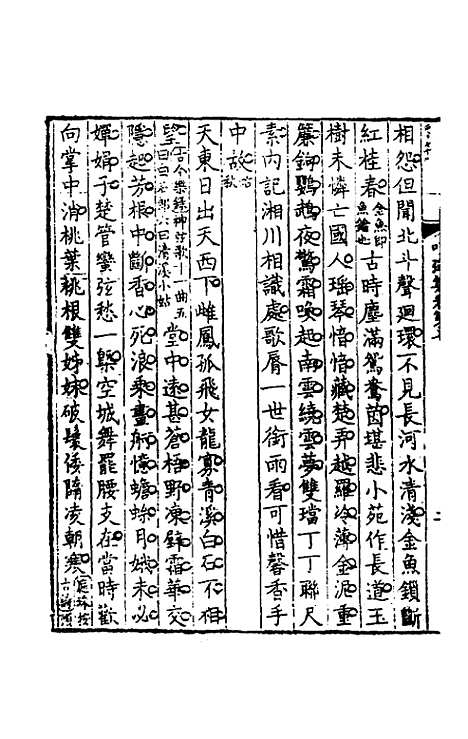 相怨但聞北斗聲廻環不見長河水清淺金魚鎖斷
紅桂春金魚即魚鑰也古時塵滿鴛鴦茵堪悲小苑作長道玉
樹未憐亡國人瑶琴愔愔藏楚弄越羅冷薄金泥重
簾鈎鸚鵡夜驚霜喚起南雲繞雲夢雙璫丁丁聯尺
素内記湘川相識處歌脣一世銜雨看可惜馨香手
中故右秋
天東日出天西下雌鳳孤飛女龍寡青溪白石不相
望古今樂録神弦歌十一曲五曰白石郎六曰清溪小姑堂中遠甚蒼梧野凍壁霜華交
隱起芳根中斷香心死浪乘畫舸憶蟾蜍月娥未必
嬋娟子楚管蠻弦愁一槩空城舞罷腰支在當時歡
向掌中消桃葉桃根雙姊妹破鬟倭隋凌朝寒庭珠按古